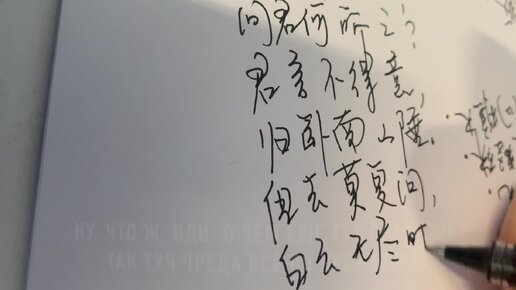 问君何所之?
君言不得意,
归卧南山陲.
但去莫复问,
白云无尽时
НУ, ЧТО Ж, ИДИ. О ЧЁМ ЕЩЁ
ТАК ТУЧ ЧРЕДА